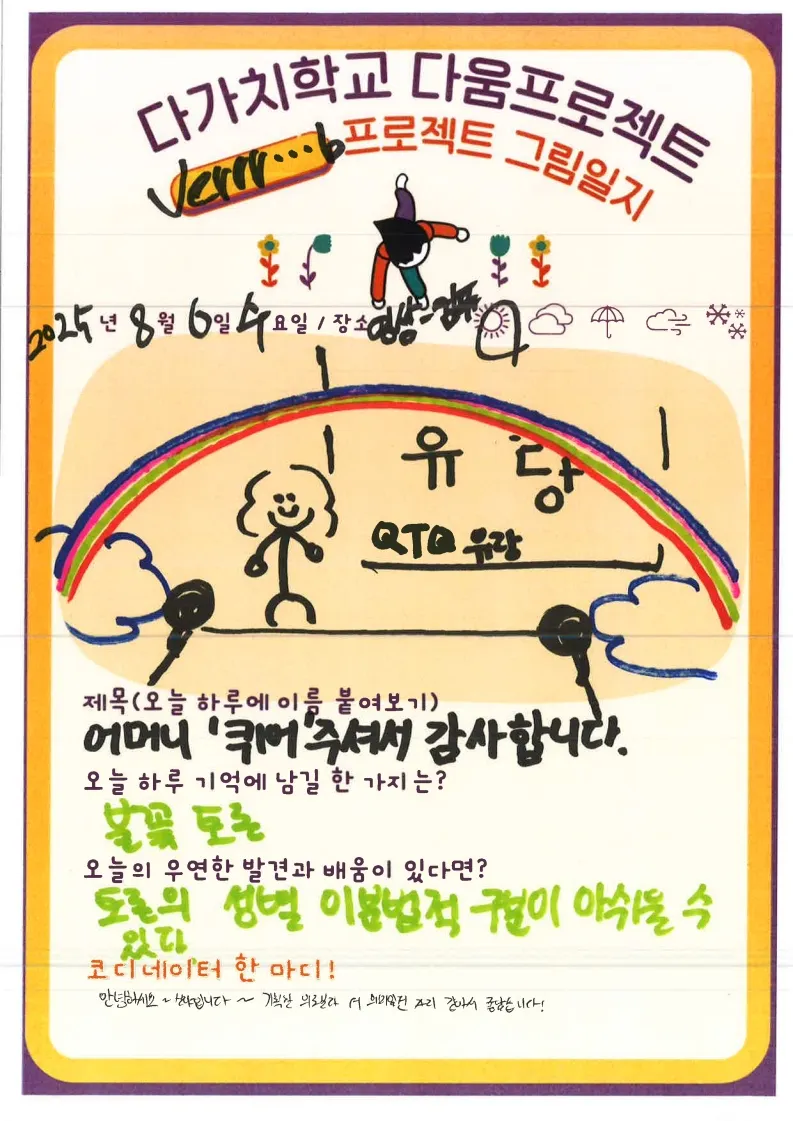 다가치학교 다움프로젝트
Verrr...b 프로젝트 그림일지
2025년 8월 6일 수요일 / 장소
유당
QTQ 유랑
제목(오늘 하루에 이름 붙여보기)
어머니 '퀴어' 주셔서 감사합니다.
오늘 하루 기억에 남길 한 가지는?
불꽃 토론
오늘의 우연한 발견과 배움이 있다면?
토론의 성별 이분법적 구별이 아쉬울 수
있다
코디네이터 한 마디!
안녕하세요~ 입니다~ 더 자리 같아서 좋았습니다!